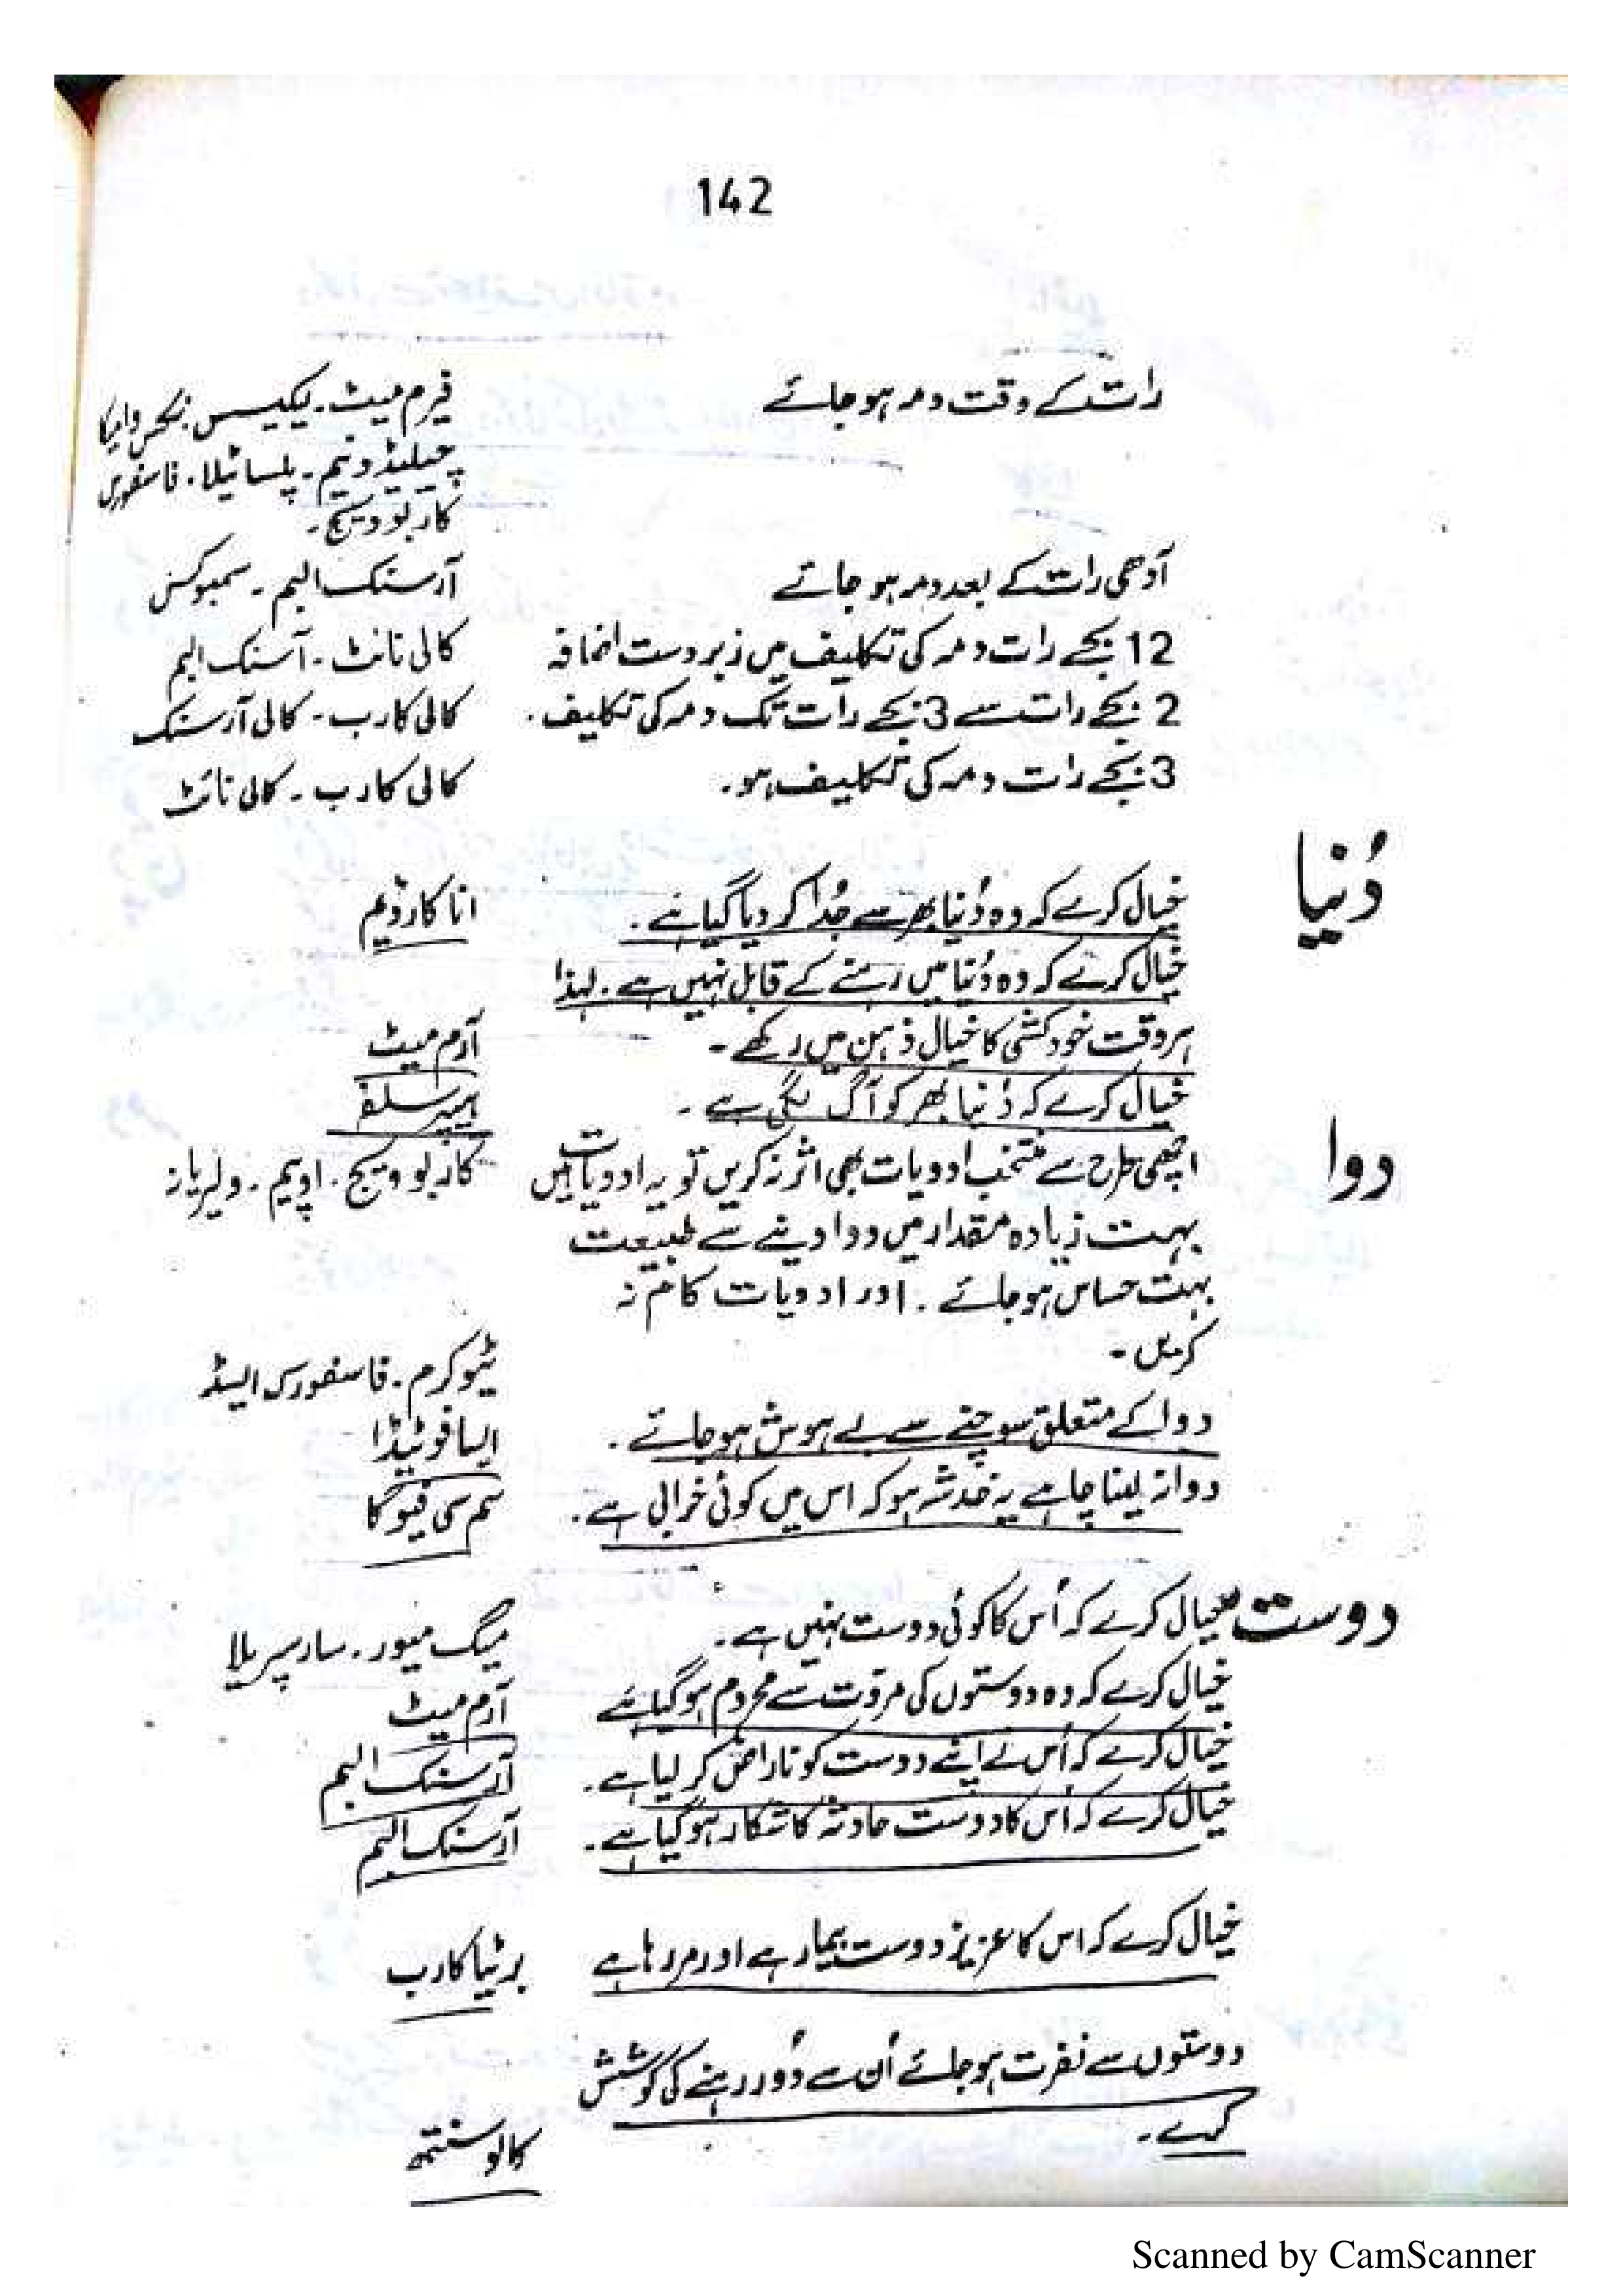 142
رات کے وقت دمہ ہو جائے فیرم میٹ۔ لیکیسس۔ نکس وامیکا
چیلیڈونیم۔ پلساٹیلا۔ فاسفورس
کاربوویج۔
آدھی رات کے بعد دمہ ہو جائے آرسنک البم۔ سمبوکس
12 بجے رات دمہ کی تکلیف میں زبردست اضافہ کالی نائٹ۔ آسنک البم
2 بجے رات سے 3 بجے رات تک دمہ کی تکلیف۔ کالی کارب۔ کالی آرسنک
3 بجے رات دمہ کی تکلیف ہو۔ کالی کارب۔ کالی نائٹ
دُنیا
خیال کرے کہ وہ دُنیا بھر سے جُدا کر دیا گیا ہے۔ اناکارڈیم
خیال کرے کہ وہ دُنیا میں رہنے کے قابل نہیں ہے۔ لہذا
ہر وقت خودکشی کا خیال ذہن میں رکھے۔ آرم میٹ
خیال کرے کہ دُنیا بھر کو آگ لگی ہے۔ ہیپر سلفر
دوا اچھی طرح سے منتخب ادویات بھی اثر نہ کریں تو یہ ادویات ہیں کاربو ویج۔ اوپیم۔ ولیریانہ
بہت زیادہ مقدار میں دوا دینے سے طبیعت
بہت حساس ہو جائے۔ اور ادویات کام نہ
کریں۔ ٹیوکرم۔ فاسفورک ایسڈ
دوا کے متعلق سوچنے سے بے ہوش ہو جائے۔ ایسافوٹیڈا
دوا نہ لینا چاہے یہ خدشہ ہو کہ اس میں کوئی خرابی ہے۔ سم سی فیوگا
دوست خیال کرے کہ اُس کا کوئی دوست نہیں ہے۔ میگ میور۔ سارسپریلا
خیال کرے کہ وہ دوستوں کی مروت سے محروم ہو گیا ہے آرم میٹ
خیال کرے کہ اُس نے اپنے دوست کو ناراض کر لیا ہے۔ آرسنک البم
خیال کرے کہ اُس کا دوست حادثہ کا شکار ہو گیا ہے۔ آرسنک البم
خیال کرے کہ اس کا عزیز دوست بیمار ہے اور مر رہا ہے برٹیا کارب
دوستوں سے نفرت ہو جائے اُن سے دُور رہنے کی کوشش
کرے۔ کالوسنتھ
Scanned by CamScanner